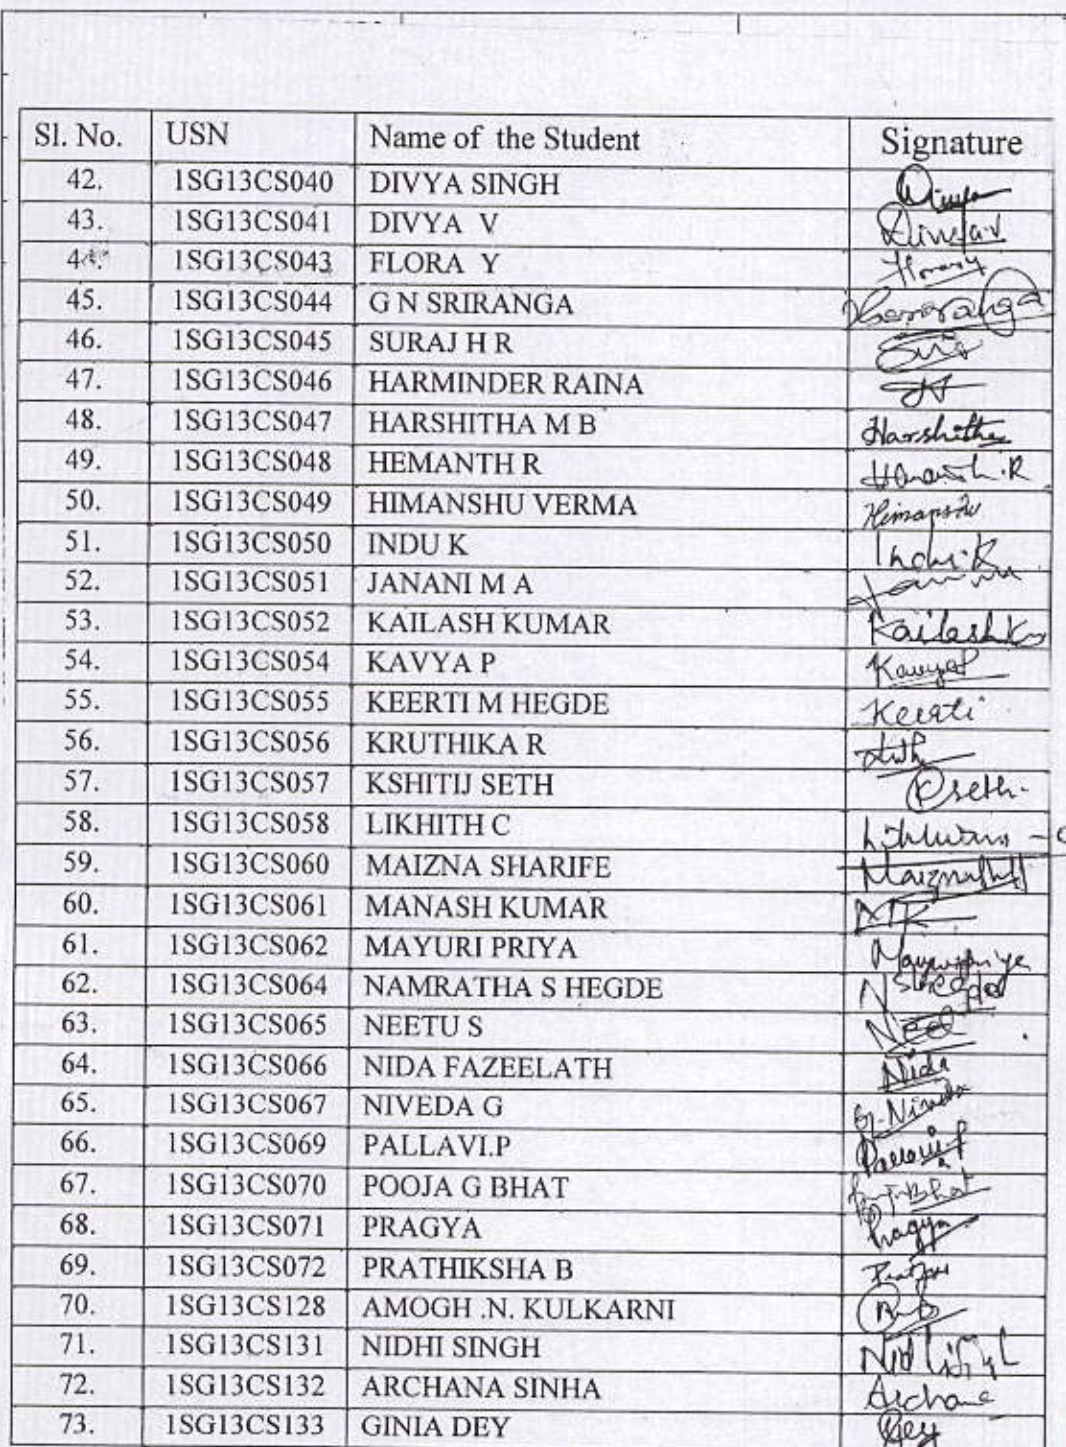 Sl. No. USN Name of the Student Signature
42. 1SG13CS040 DIVYA SINGH Divya
43. 1SG13CS041 DIVYA V Divya.V
44. 1SG13CS043 FLORA Y Flora y
45. 1SG13CS044 G N SRIRANGA
46. 1SG13CS045 SURAJ H R
47. 1SG13CS046 HARMINDER RAINA
48. 1SG13CS047 HARSHITHA M B Harshitha
49. 1SG13CS048 HEMANTH R Hemanth.R
50. 1SG13CS049 HIMANSHU VERMA Himanshu
51. 1SG13CS050 INDU K Indu.K
52. 1SG13CS051 JANANI M A
53. 1SG13CS052 KAILASH KUMAR Kailash
54. 1SG13CS054 KAVYA P KavyaP
55. 1SG13CS055 KEERTI M HEGDE Keerti
56. 1SG13CS056 KRUTHIKA R
57. 1SG13CS057 KSHITIJ SETH Kseth.
58. 1SG13CS058 LIKHITH C
59. 1SG13CS060 MAIZNA SHARIFE
60. 1SG13CS061 MANASH KUMAR
61. 1SG13CS062 MAYURI PRIYA Mayuripriya
62. 1SG13CS064 NAMRATHA S HEGDE
63. 1SG13CS065 NEETU S
64. 1SG13CS066 NIDA FAZEELATH Nida
65. 1SG13CS067 NIVEDA G G.Niveda
66. 1SG13CS069 PALLAVI.P Pallavi.P
67. 1SG13CS070 POOJA G BHAT Bhat
68. 1SG13CS071 PRAGYA Pragya
69. 1SG13CS072 PRATHIKSHA B
70. 1SG13CS128 AMOGH .N. KULKARNI
71. 1SG13CS131 NIDHI SINGH
72. 1SG13CS132 ARCHANA SINHA Archana
73. 1SG13CS133 GINIA DEY Dey